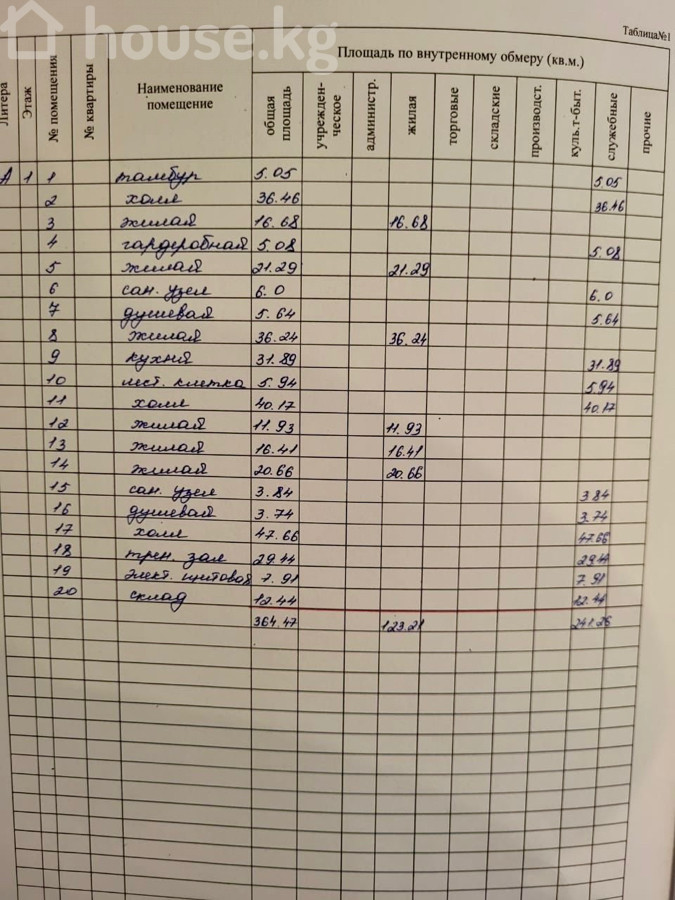 house.kg
Таблица№1
Литера
Этаж
№ помещения
№ квартиры
Наименование
помещение
Площадь по внутренному обмеру (кв.м.)
общая
площадь
учрежден-
ческое
администр.
жилая
торговые
складские
производст.
куль.т-быт.
служебные
прочие
А 1 1 тамбур 5.05 5.05
2 холл 36.46 36.46
3 жилая 16.68 16.68
4 гардеробная 5.08 5.08
5 жилая 21.29 21.29
6 сан. узел 6.0 6.0
7 душевая 5.64 5.64
8 жилая 36.24 36.24
9 кухня 31.89 31.89
10 лест. клетка 5.94 5.94
11 холл 40.17 40.17
12 жилая 11.93 11.93
13 жилая 16.41 16.41
14 жилая 20.66 20.66
15 сан. узел 3.84 3.84
16 душевая 3.74 3.74
17 холл 47.66 47.66
18 трен. зал 29.44 29.44
19 элект. щитовая 7.91 7.91
20 склад 12.44 12.44
364.47 123.21 241.26